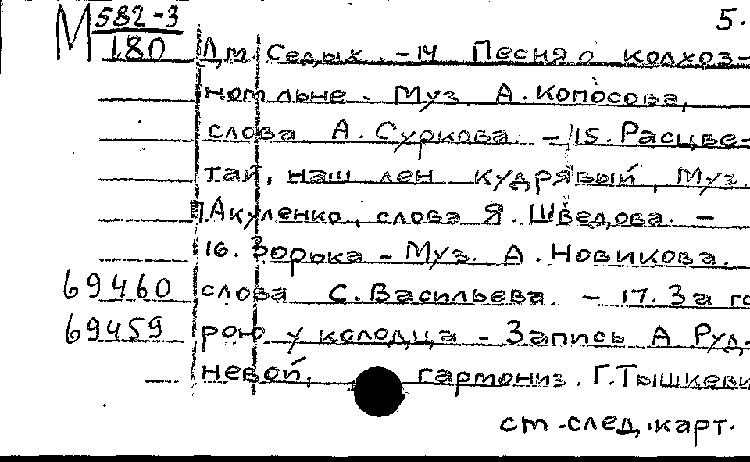 М 582-3 5.
180 Дм. Седых. -14 Песня о колхоз-
ном льне. Муз. А. Копосова,
слова А. Суркова. - 15. Расцве-
тай, наш лен кудрявый, Муз.
П. Акуленко, слова Я. Шведова. -
16. Зорька - Муз. А. Новикова.
69460 слова С. Васильева. - 17. За го
69459 рою у колодца - Запись А Руд-
невой, гармониз. Г. Тышкеви
см. след. карт.